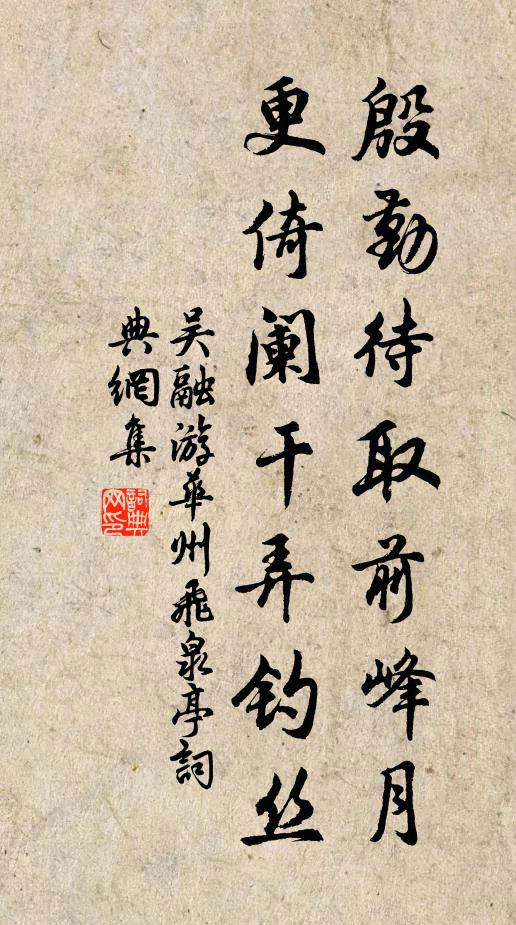 殷勤待取前峰月
更倚阑干弄钓丝
吴融游華州飛泉亭詞
典網集
詞典网印